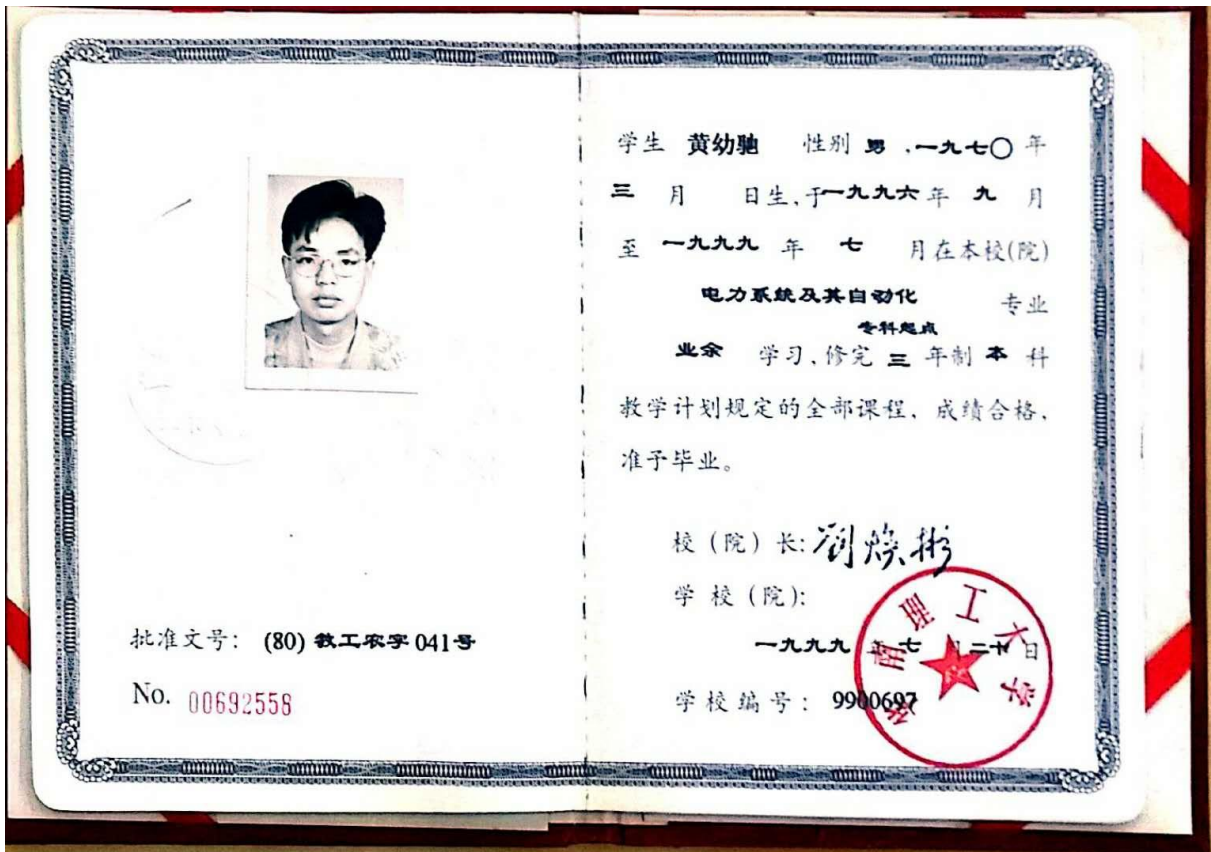 批准文号: (80) 教工农字 041号
No. 00692558
学生 黄幼驰 性别 男 ,一九七〇 年
三 月 日生,于一九九六 年 九 月
至 一九九九 年 七 月在本校(院)
电力系统及其自动化 专业
专科起点
业余 学习,修完 三 年制 本 科
教学计划规定的全部课程,成绩合格,
准予毕业。
校(院)长: 劉煥彬
学校(院):
华南理工大学
一九九九 年 七 月二十日
学校编号: 9900697